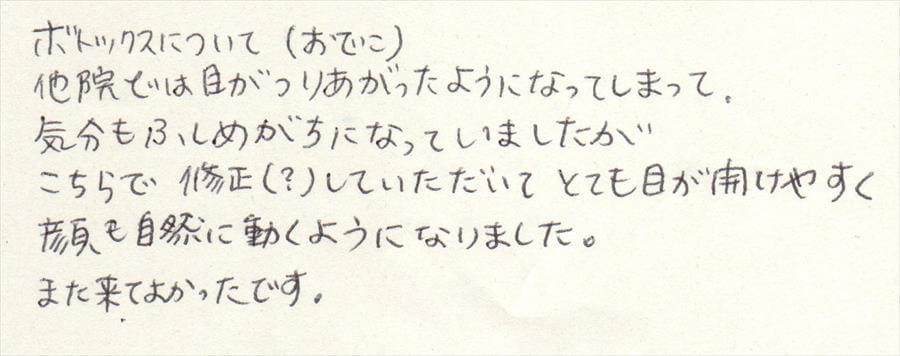 ボトックスについて(おでこ)
他院では目がつりあがったようになってしまって、
気分もふしめがちになっていましたが
こちらで 修正(?)していただいて とても目が開けやすく
顔も自然に動くようになりました。
また来てよかったです。